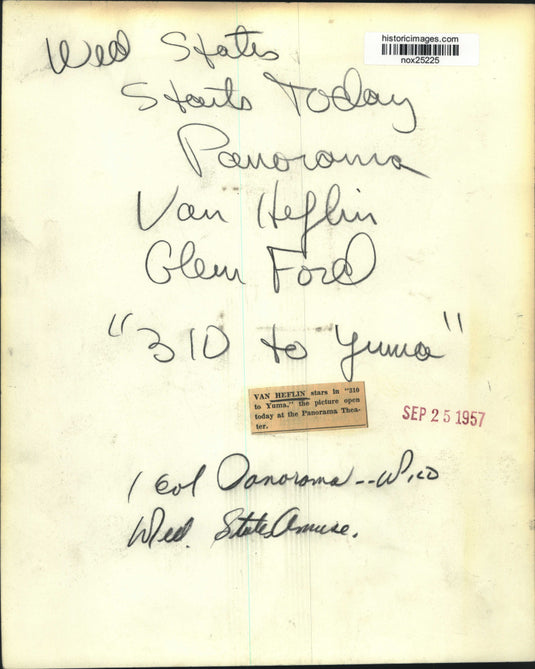 historicimages.com
nox25225
Wed States
Starts Today
Panorama
Van Heflin
Glenn Ford
"310 to Yuma"
VAN HEFLIN stars in "310
to Yuma," the picture open
today at the Panorama Thea-
ter.
SEP 25 1957
1 col Panorama--
Wed. States Amuse.